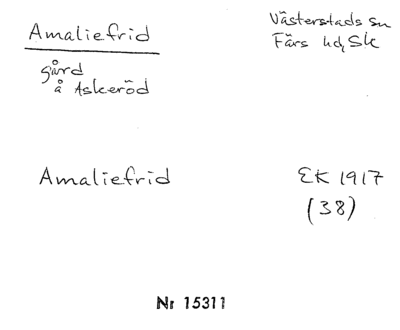 Amaliefrid
Västerstads sn
Färs hd, Sk
gård
å Askeröd
Amaliefrid
EK 1917
(38)
Nr 15311